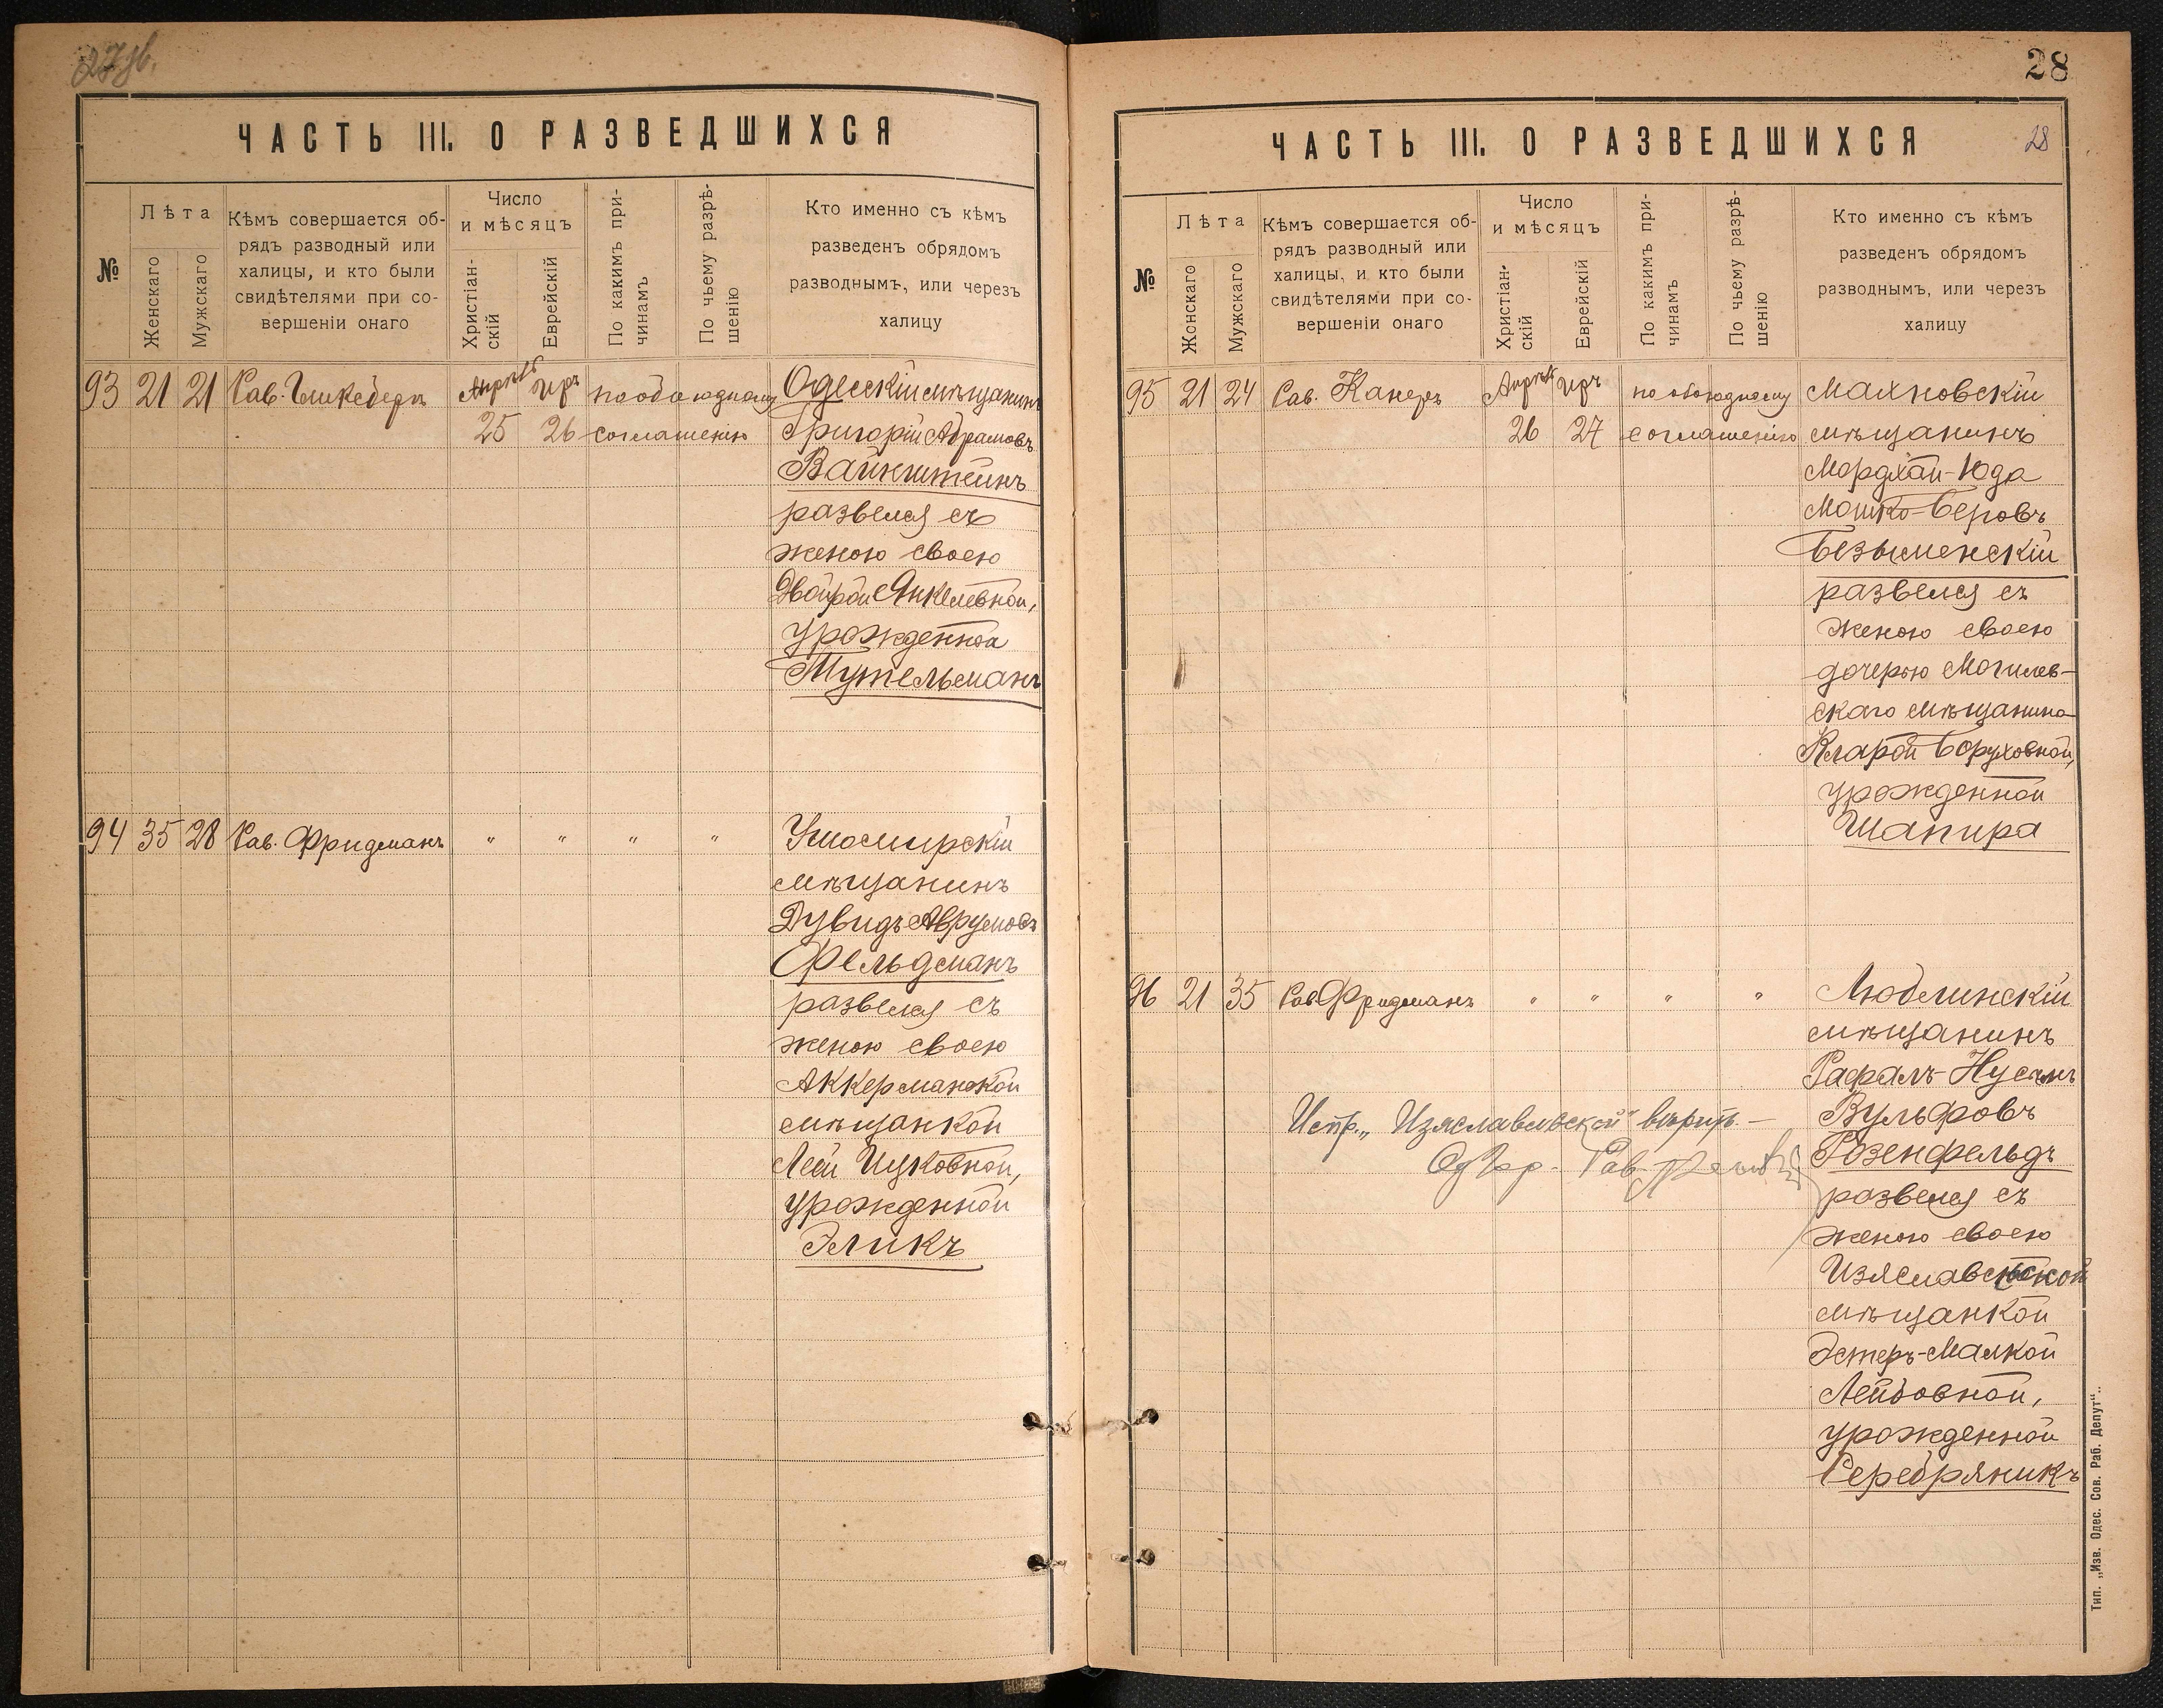 27 об.
ЧАСТЬ III. О РАЗВЕДШИХСЯ
№
Лѣта
Женскаго
Мужскаго
Кѣмъ совершается об-
рядъ разводный или
халицы, и кто были
свидѣтелями при со-
вершеніи онаго
Число
и мѣсяцъ
Христіан-
скій
Еврейскій
По какимъ при-
чинамъ
По чьему разрѣ-
шенію
Кто именно съ кѣмъ
разведенъ обрядомъ
разводнымъ, или черезъ
халицу
93 21 21 Рав. Апрѣль Иръ по обоюдному Одесскій мѣщанинъ
25 26 соглашенію Григорій Абрамовъ
Вайнштейнъ
развелся съ
женою своею
Двойрой Янкелевной,
урожденной
Тутельманъ
94 35 28 Рав. Фридманъ " " " " Жмосмирскій
мѣщанинъ
Дувидъ Аврумовъ
Фельдманъ
развелся съ
женою своею
Аккерманской
мѣщанкой
Леей Ицковной,
урожденной
Эликъ
28
ЧАСТЬ III. О РАЗВЕДШИХСЯ 28
№
Лѣта
Жонскаго
Мужскаго
Кѣмъ совершается об-
рядъ разводный или
халицы, и кто были
свидѣтелями при со-
вершеніи онаго
Число
и мѣсяцъ
Христіан-
скій
Еврейскій
По какимъ при-
чинамъ
По чьему разрѣ-
шенію
Кто именно съ кѣмъ
разведенъ обрядомъ
разводнымъ, или черезъ
халицу
95 21 24 Рав. Канеръ Апрѣль Иръ по обоюдному Махновскій
26 27 соглашенію мѣщанинъ
Мордхай-Юда
Мошко-Беровъ
Безыменскій
развелся съ
женою своею
дочерью Могилев-
скаго мѣщанина
Кларой Боруховной,
урожденной
Шапира
96 21 35 Рав. Фридманъ " " " " Люблинскій
мѣщанинъ
Рафалъ-Нусынъ
Вульфовъ
Розенфельдъ
развелся съ
женою своею
Изяславльской
мѣщанкой
Эстеръ-Малкой
Лейбовной,
урожденной
Серебряникъ
Испр. „Изяславльской" вѣрить.—
Од. Гор. Рав.
Тип. „Изв. Одес. Сов. Раб. Депут“.